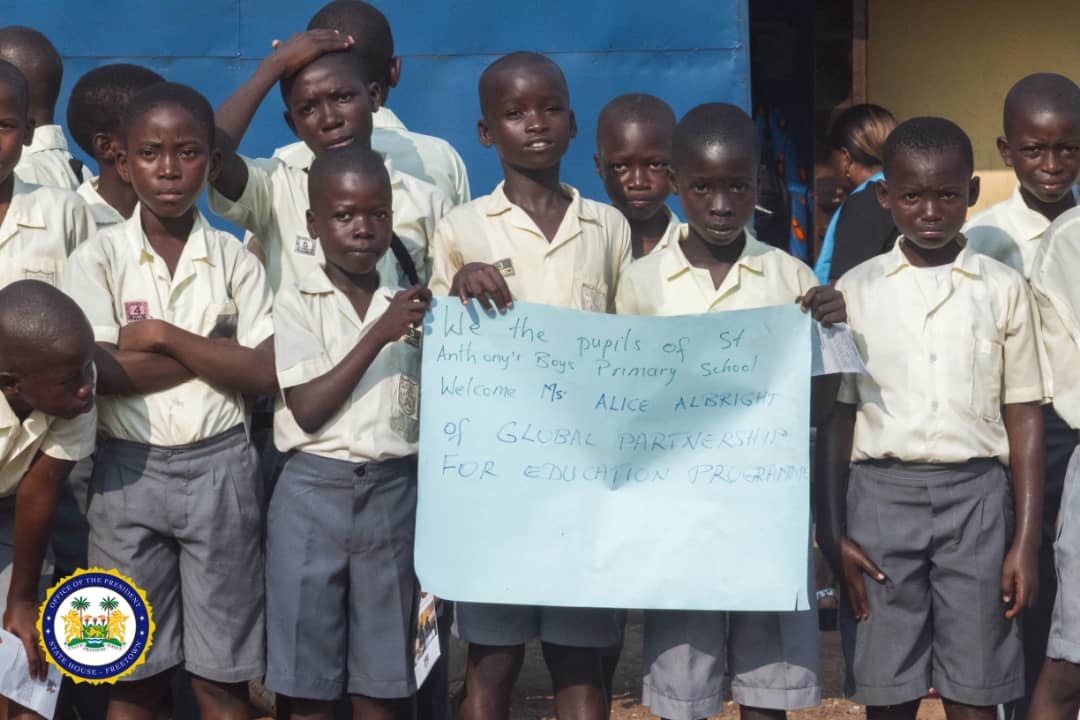 We the pupils of St
Anthony's Boys Primary School
Welcome Ms. ALICE ALBRIGHT
of GLOBAL PARTNERSHIP
FOR EDUCATION PROGRAMME
4
OFFICE OF THE PRESIDENT
STATE HOUSE - FREETOWN